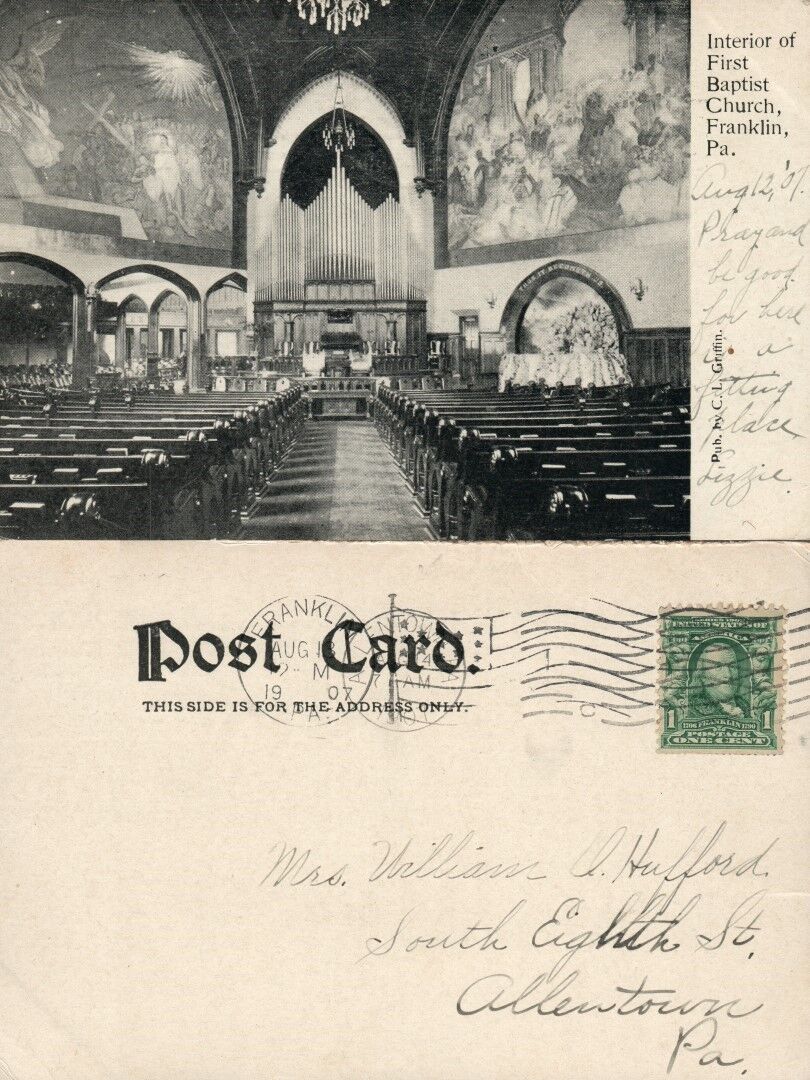 Interior of
First
Baptist
Church,
Franklin,
Pa.
Aug 12, '07.
Pray and
be good
for here
is a
fitting
place.
Lizzie.
Pub. by C. L. Griffin.
Post Card.
THIS SIDE IS FOR THE ADDRESS ONLY.
FRANKLIN
AUG 13
M
19 07
PA.
ALLENTOWN
AM
SERIES 1902
UNITED STATES OF
AMERICA
1 1706 FRANKLIN 1790 1
POSTAGE
ONE CENT
Mrs. William O. Hufford.
South Eighth St.
Allentown
Pa.